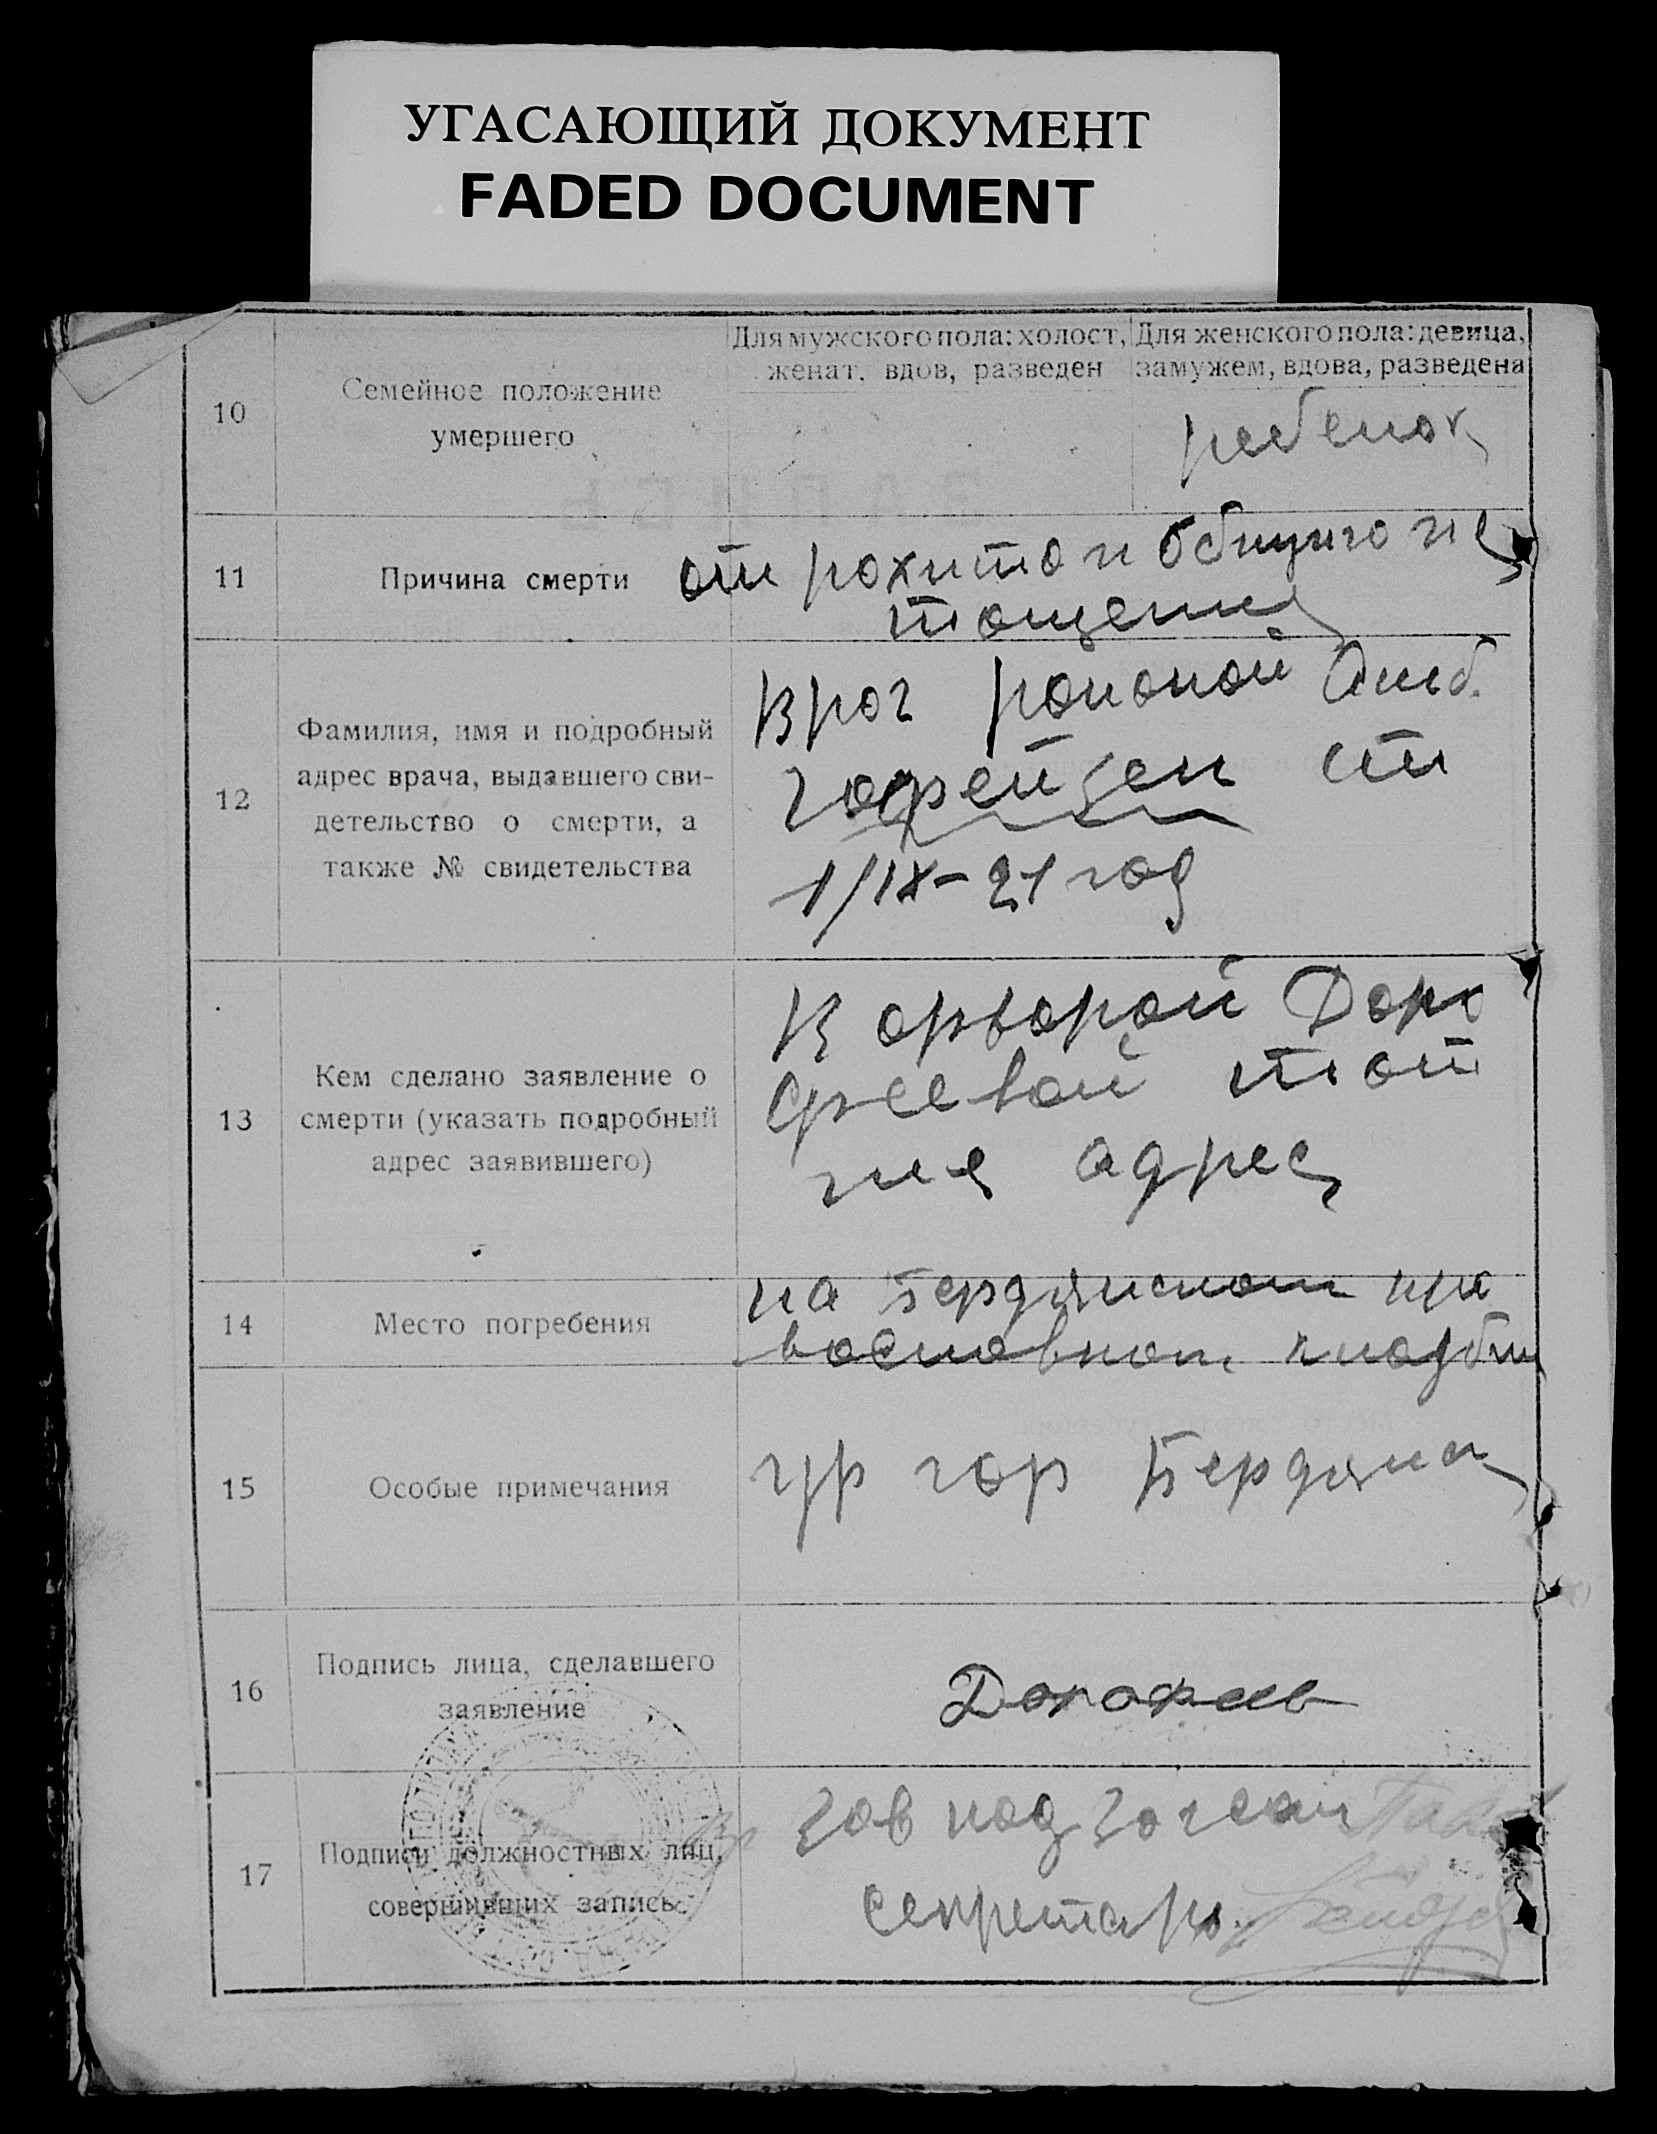 УГАСАЮЩИЙ ДОКУМЕНТ
FADED DOCUMENT
10
Семейное положение
умершего
Для мужского пола: холост,
женат, вдов, разведен
Для женского пола: девица,
замужем, вдова, разведена
ребенок
11
Причина смерти
от рохита и общего ис
тощения
12
Фамилия, имя и подробный
адрес врача, выдавшего сви-
детельство о смерти, а
также № свидетельства
Врач районой Амб.
от
1/IX-21 год
13
Кем сделано заявление о
смерти (указать подробный
адрес заявившего)
Доро
феевой тот
же адрес
14
Место погребения
на Бердянском пра
вославном кладби
15
Особые примечания
гр гор Бердянск
16
Подпись лица, сделавшего
заявление
Дорофеев
17
Подписи должностных лиц,
совершивших запись
Зав под
секретарь